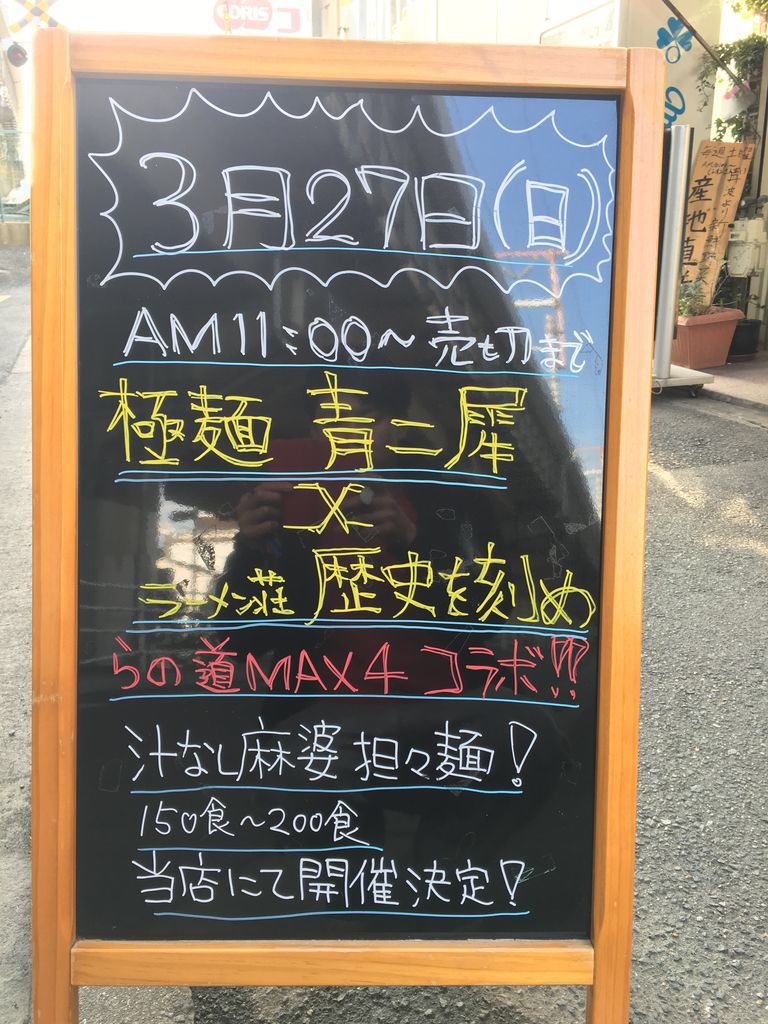 3月27日(日)
AM11:00～売切まで
極麺 青二犀
×
ラーメン荘 歴史を刻め
らの道MAX4 コラボ!!
汁なし麻婆担々麺!
150食～200食
当店にて開催決定!
毎週土曜
産地直